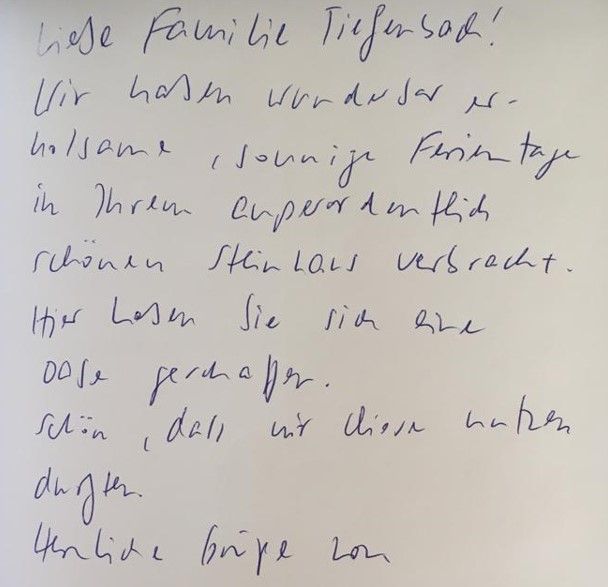 Liebe Familie Tiefenbach!
Wir haben wunderbar er-
holsame, sonnige Ferientage
in Ihrem außerordentlich
schönen Steinhaus verbracht.
Hier haben Sie sich eine
Oase geschaffen.
Schön, dass wir diese nutzen
durften.
Herzliche Grüße von